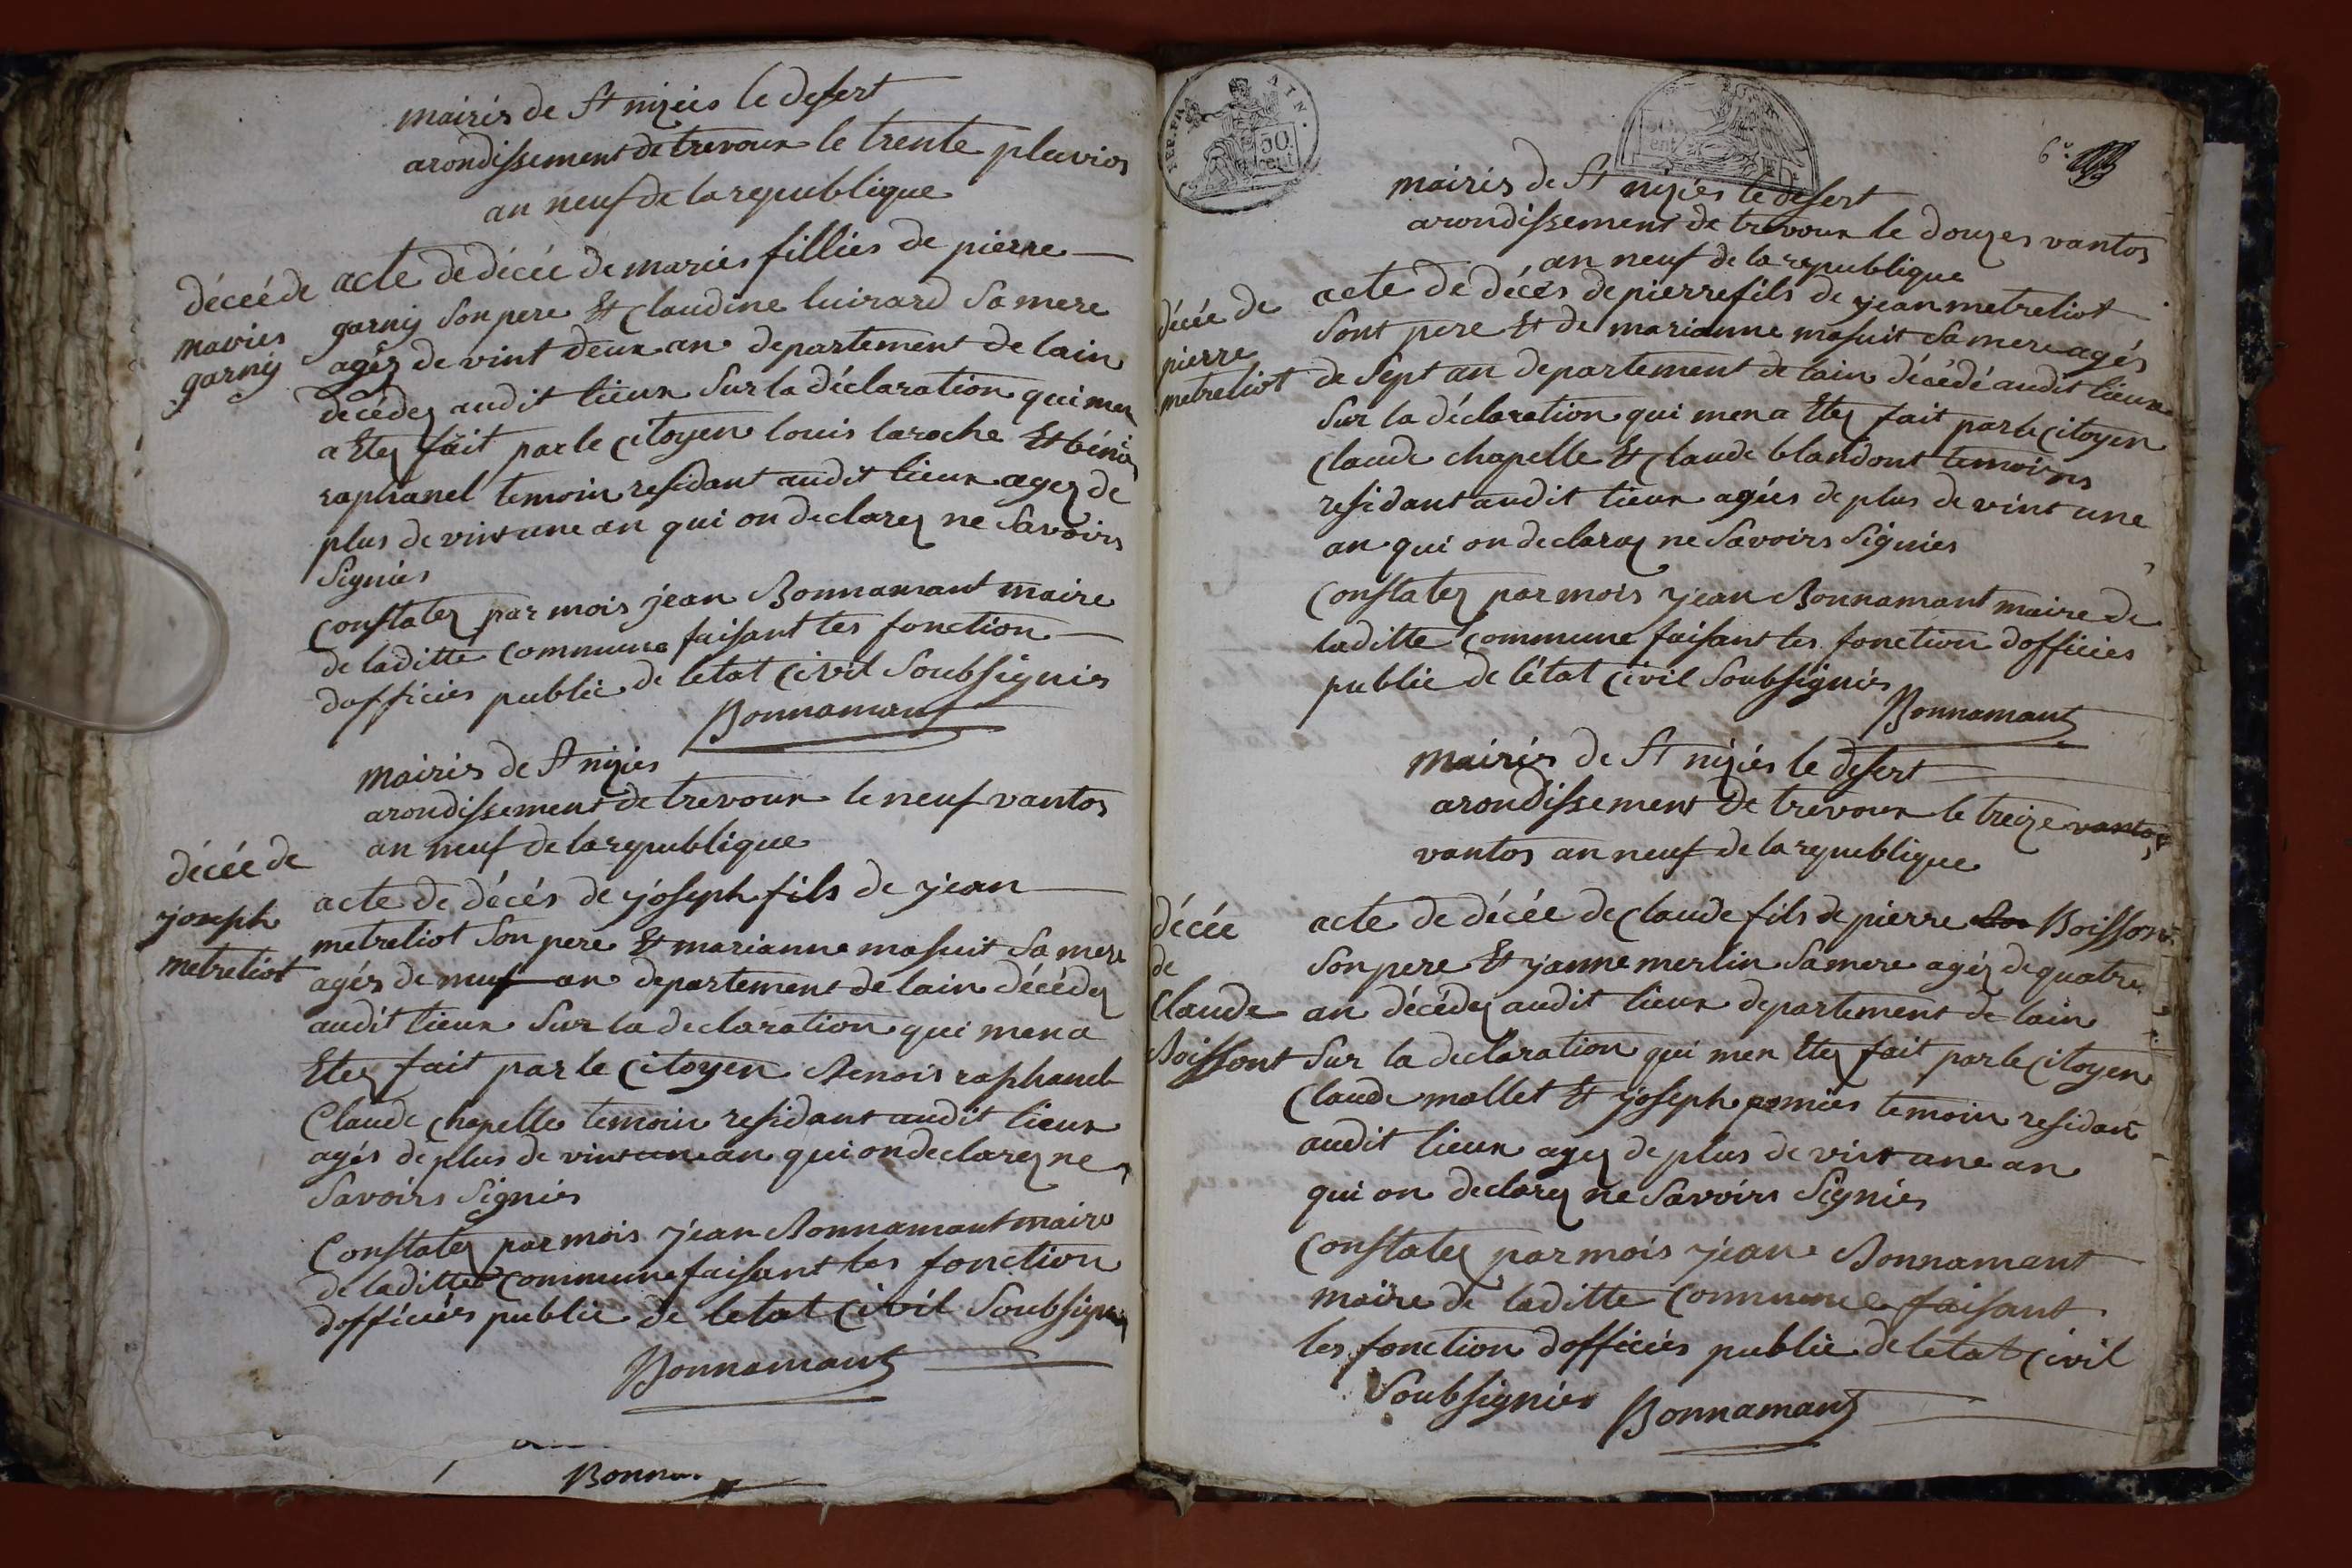 mairies de St nizies le desert
arondissement de trevoux le trente pluvios
an neuf de la republique
décée de
maries
garnij
acte de décée de maries fillies de pierre
garnij son pere Et Claudine luirard sa mere
agéz de vint deux an departement de lain
decédez audit lieux sur la déclaration qui men
a Etez fait par le Citoyen louis laroche Et bénois
raphanel temoin residant audit lieux agez de
plus de vint une an qui on declarez ne savoirs
signies
Constatez par mois jean Bonnamant maire
de laditte Commune faisant les fonction
dofficies public de letat Civil soubsignies
Bonnamant
mairies de St nizies
arondissement de trevoux le neuf vantos
an neuf de la republique
décée de
joseph
metreliot
acte de décés de joseph fils de jean
metreliot son pere Et marianne masuit sa mere
agés de neuf an departement de lain décédez
audit lieux sur la declaration qui men a
Etez fait par le Citoyen Benois raphanel
Claude chapelle temoin residant audit lieux
agés de plus de vint une an qui on declarez ne
savoirs signies
Constatez par mois jean Bonnamant maire
de laditte Commune faisant les fonction
dofficiés public de letat Civil soubsignez
Bonnamant
REP. FRA
50
cent
6e
mairies de St nizies le desert
arondissement de trevoux le douzes vantos
an neuf de la republique
décée de
pierre
metreliot
acte de décés de pierre fils de jean metreliot
sont pere Et de marianne masuit sa mere agés
de sept an departement de lain décédé audit lieux
sur la déclaration qui men a Etez fait par le Citoyen
Claude chapelle Et Claude blandont temoins
residant audit lieux agées de plus de vint une
an qui on declarez ne savoirs signies
Constatez par mois jean Bonnamant maire de
laditte Commune faisant les fonction dofficies
public de létat Civil soubsigniés
Bonnamant
mairies de St niziés le desert
arondissement de trevoux le treize vantos
vantos an neuf de la republique
décée
de
Claude
Boissont
acte de décée de Claude fils de pierre Boissont
son pere Et janne merlin sa mere agéz de quatre
an décédez audit lieux departement de lain
sur la declaration qui men Etez fait par le Citoyen
Claude mallet Et joseph pomies temoin residant
audit lieux agez de plus de vint une an
qui on declarez ne savoirs signies
Constatez par mois jean Bonnamant
maire de laditte Commune faisant
les fonction dofficiés public de letat Civil
soubsignies Bonnamant